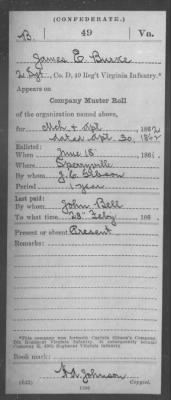 (CONFEDERATE.)
B. 49 Va.
James E.
2 Sgt., Co. D, 49 Reg't Virginia Infantry.*
Appears on
Company Muster Roll
of the organization named above,
for Mch & Apl, 1862
dated Apl 30, 1862
Enlisted:
When June 18, 1861.
Where Sperryville
By whom J. C. Gibson
Period 1 year
Last paid:
By whom John Bell
To what time 28 Feby, 186
Present or absent Present
Remarks:
*This company was formerly Captain Gibson's Company,
49th Regiment Virginia Infantry. It subsequently became
Company K, 49th Regiment Virginia Infantry.
Book mark:
Johnson
(642) Copyist.